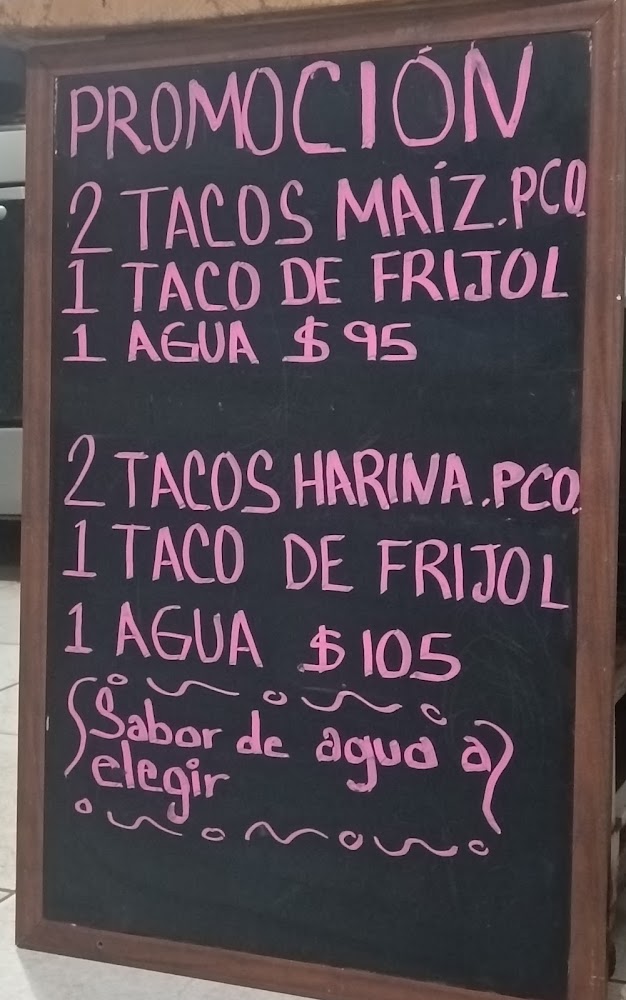 PROMOCIÓN
2 TACOS MAÍZ.PCO.
1 TACO DE FRIJOL
1 AGUA $95
2 TACOS HARINA.PCO.
1 TACO DE FRIJOL
1 AGUA $105
Sabor de agua a
elegir